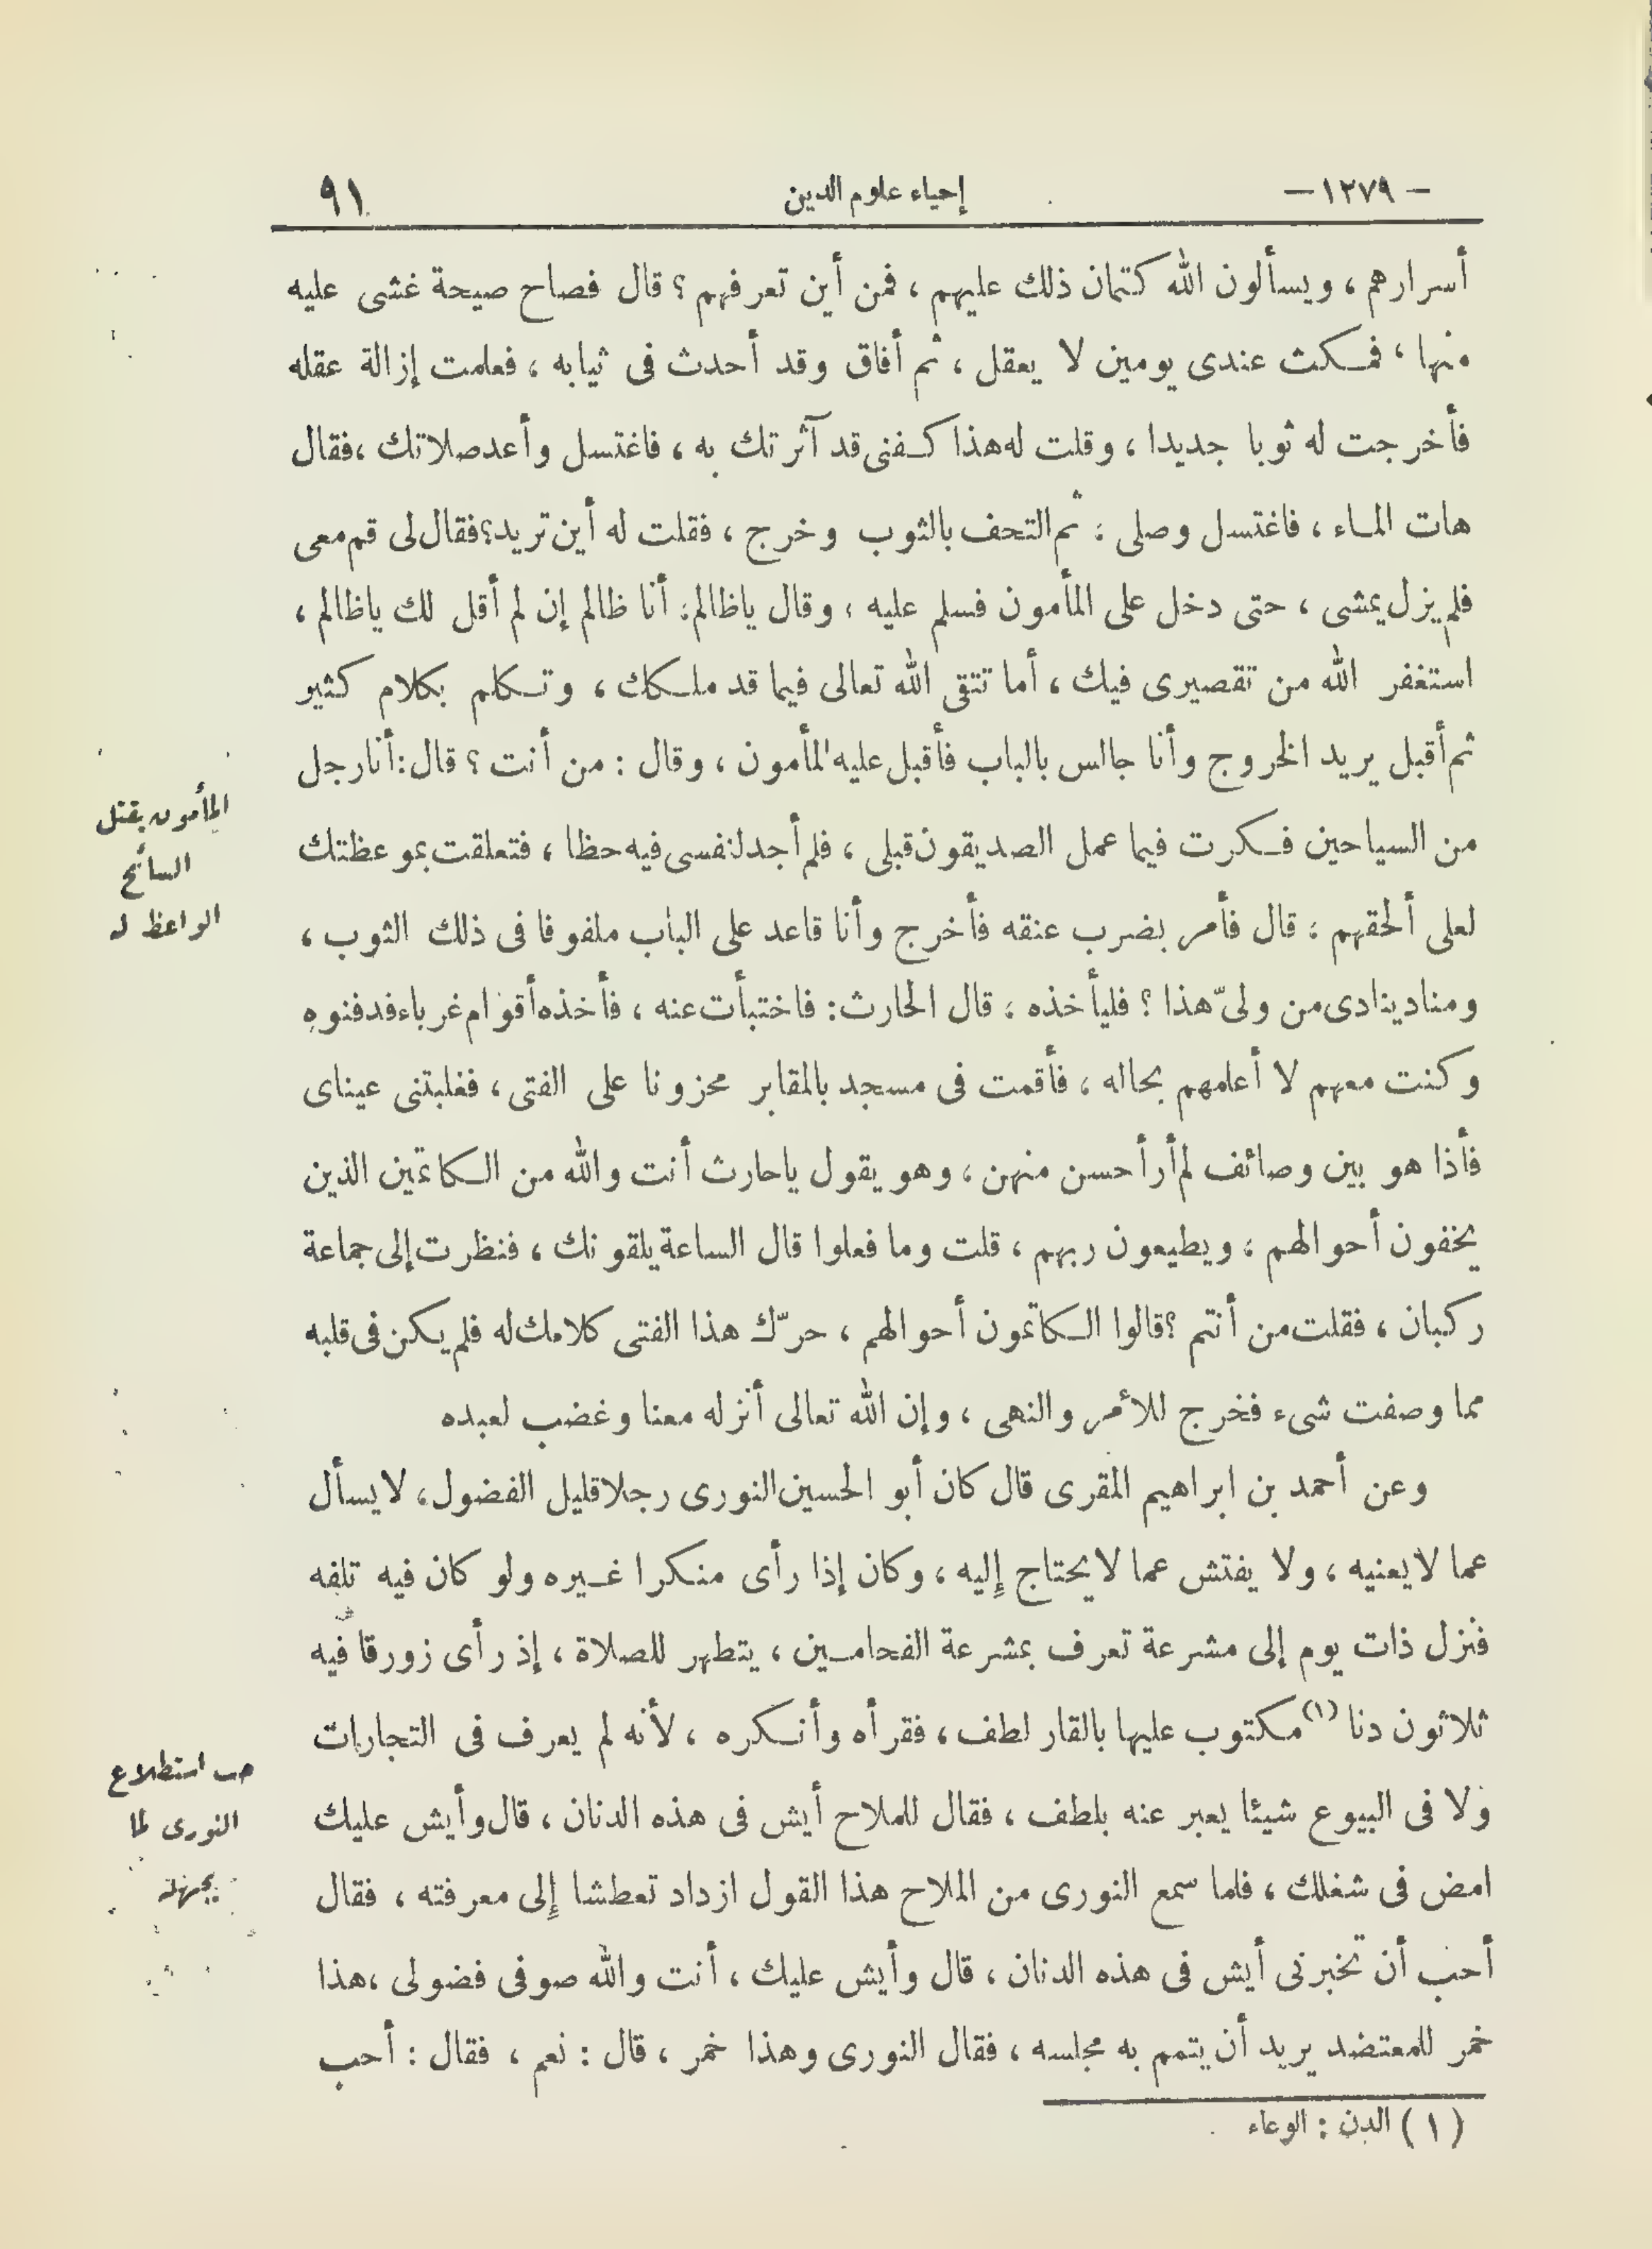 - ١٢٧٩ -
إحياء علوم الدين
٩١
أسرارهم ، ويسألون الله كتمان ذلك عليهم ، فمن أين تعرفهم ؟ قال فصاح صيحة غشى عليه
منها ، فمكث عندى يومين لا يعقل ، ثم أفاق وقد أحدث فى ثيابه ، فعلمت إزالة عقله
فأخرجت له ثوبا جديدا ، وقلت له هذا كفنى قد آثرتك به ، فاغتسل وأعد صلاتك ، فقال
هات الماء ، فاغتسل وصلى ؛ ثم التحف بالثوب وخرج ، فقلت له أين تريد؟ فقال لى قم معى
فلم يزل يمشى ، حتى دخل على المأمون فسلم عليه ، وقال ياظالم: أنا ظالم إن لم أقل لك ياظالم ،
استغفر الله من تقصيرى فيك ، أما تتقى الله تعالى فيما قد ملكك ، وتكلم بكلام كثير
ثم أقبل يريد الخروج وأنا جالس بالباب فأقبل عليه المأمون ، وقال : من أنت ؟ قال: أنا رجل
من السياحين فكرت فيما عمل الصديقون قبلى ، فلم أجد لنفسى فيه حظا ، فتعلقت بموعظتك
لعلى ألحقهم ؛ قال فأمر بضرب عنقه فأخرج وأنا قاعد على الباب ملفوفا فى ذلك الثوب ،
ومناد ينادى من ولىّ هذا ؟ فليأخذه ؛ قال الحارث: فاختبأت عنه ، فأخذه أقوام غرباء فدفنوه
وكنت معهم لا أعلمهم بحاله ، فأقمت فى مسجد بالمقابر محزونا على الفتى ، فغلبتنى عيناى
فأذا هو بين وصائف لم أر أحسن منهن ، وهو يقول ياحارث أنت والله من الكاتمين الذين
يخفون أحوالهم ؛ ويطيعون ربهم ، قلت وما فعلوا قال الساعة يلقونك ، فنظرت إلى جماعة
ركبان ، فقلت من أنتم ؟ قالوا الكاتمون أحوالهم ، حرّك هذا الفتى كلامك له فلم يكن فى قلبه
مما وصفت شىء فخرج للأمر والنهى ، وإن الله تعالى أنزله معنا وغضب لعبده
وعن أحمد بن ابراهيم المقرى قال كان أبو الحسين النورى رجلا قليل الفضول، لا يسأل
عما لا يعنيه ، ولا يفتش عما لا يحتاج إليه ، وكان إذا رأى منكرا غيره ولو كان فيه تلفه
فنزل ذات يوم إلى مشرعة تعرف بمشرعة الفحامين ، يتطهر للصلاة ، إذ رأى زورقا فيه
ثلاثون دنا (١) مكتوب عليها بالقار لطف ، فقرأه وأنكره ، لأنه لم يعرف فى التجارات
ولا فى البيوع شيئا يعبر عنه بلطف ، فقال للملاح أيش فى هذه الدنان ، قال وأيش عليك
امض فى شغلك ، فلما سمع النورى من الملاح هذا القول ازداد تعطشا إلى معرفته ، فقال
أحب أن تخبرنى أيش فى هذه الدنان ، قال وأيش عليك ، أنت والله صوفى فضولى ، هذا
خمر للمعتضد يريد أن يتمم به مجلسه ، فقال النورى وهذا خمر ، قال : نعم ، فقال : أحب
المأمون يقتل
السائح
الواعظ له
حب استطلاع
النورى لما
يجهله
(١) الدن : الوعاء